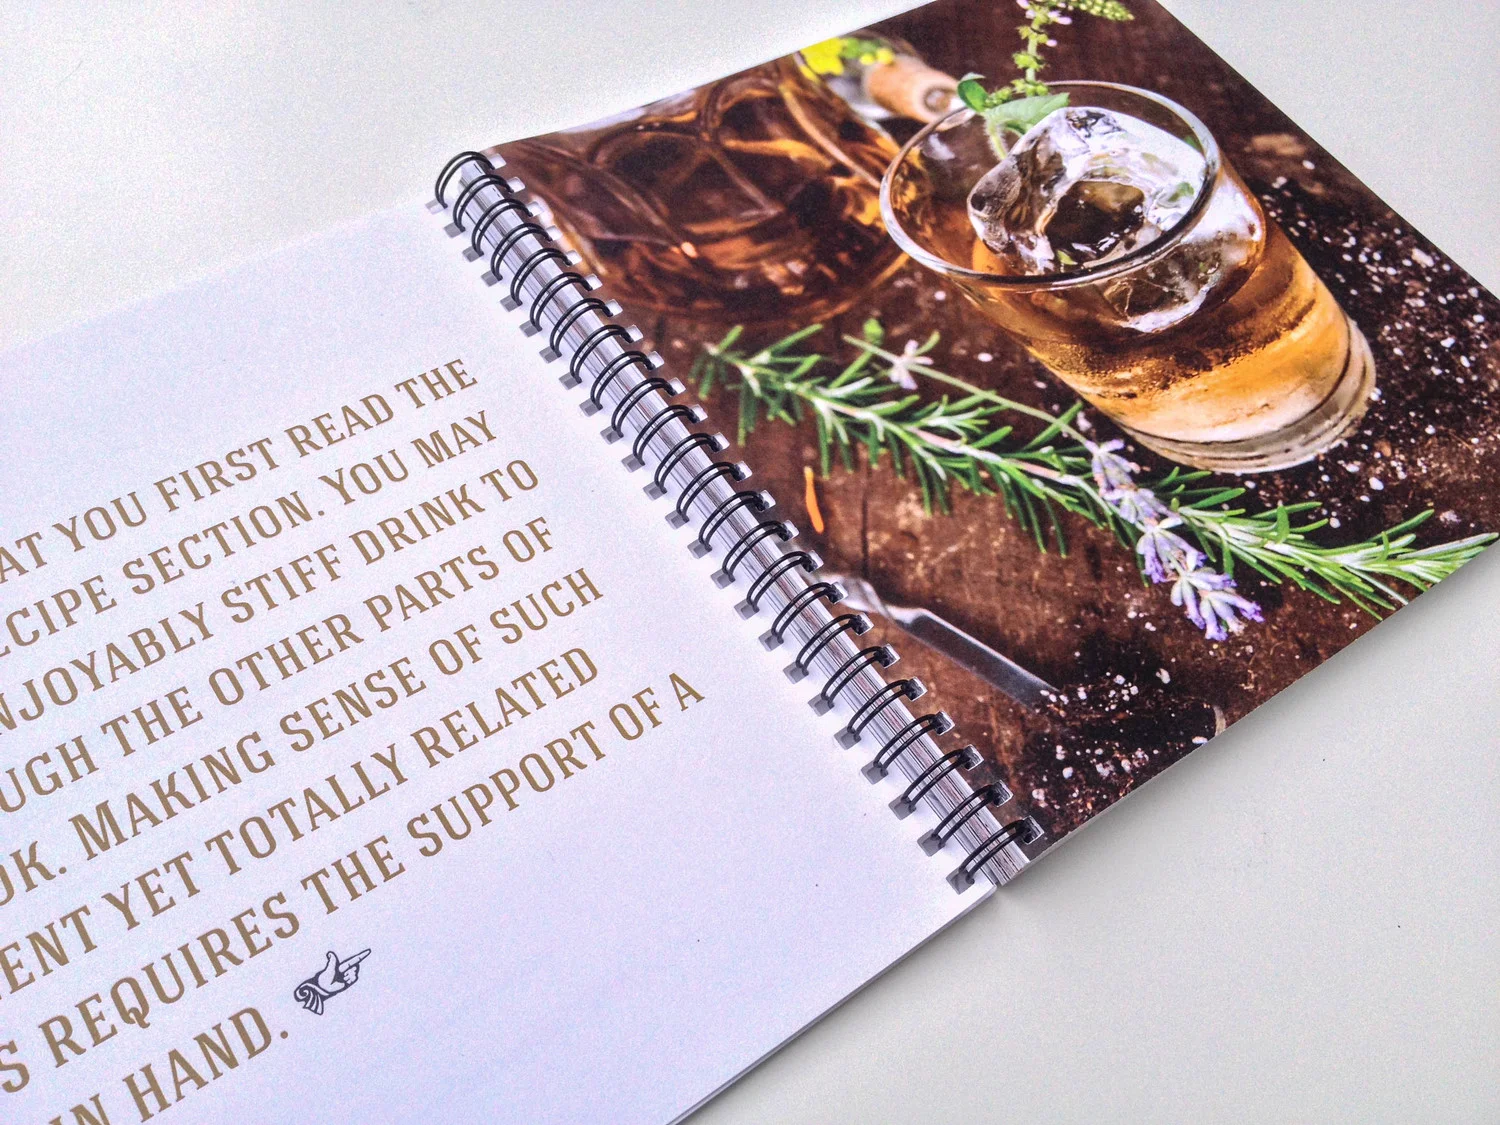 AT YOU FIRST READ THE
ECIPE SECTION. YOU MAY
NJOYABLY STIFF DRINK TO
UGH THE OTHER PARTS OF
OK. MAKING SENSE OF SUCH
ENT YET TOTALLY RELATED
S REQUIRES THE SUPPORT OF A
IN HAND.